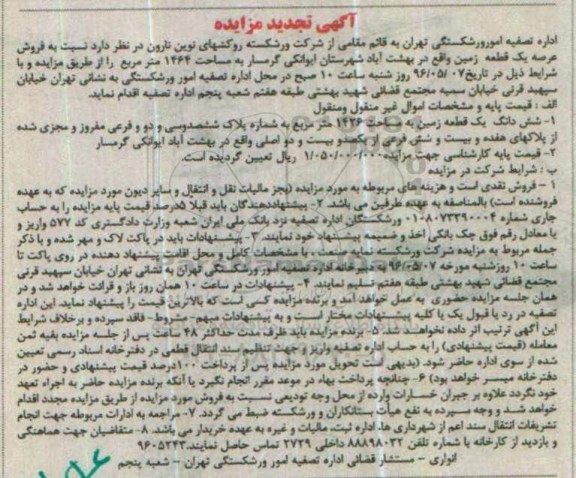 آگهی تجدید مزایده
اداره تصفیه امورورشکستگی تهران به قائم مقامی از شرکت ورشکسته روکشهای نوین نارون در نظر دارد نسبت به فروش
عرصه یک قطعه زمین واقع در بهشت آباد شهرستان ایوانکی گرمسار به مساحت ۱۴۶۴ متر مربع را از طریق مزایده و با
شرایط ذیل در تاریخ ۹۶/۰۵/۰۷ روز شنبه ساعت ۱۰ صبح در محل اداره تصفیه امور ورشکستگی به نشانی تهران خیابان
سپهبد قرنی خیابان سمیه مجتمع قضائی شهید بهشتی طبقه هفتم شعبه پنجم اداره تصفیه اقدام نماید.
الف : قیمت پایه و مشخصات اموال غیر منقول ومنقول
۱- شش دانگ یک قطعه زمین به مساحت ۱۴۲۶ متر مربع به شماره پلاک ششصدوسی و دو و فرعی مفروز و مجزی شده
از پلاکهای هفده و بیست و شش فرعی از یکصدو بیست و دو اصلی واقع در بهشت آباد ایوانکی گرمسار
۲- قیمت پایه کارشناسی جهت مزایده ۱/۰۵۰/۰۰۰/۰۰۰ ریال تعیین گردیده است.
ب : شرایط شرکت در مزایده
۱ – فروش نقدی است و هزینه های مربوطه به مورد مزایده (بجز مالیات نقل و انتقال و سایر دیون مورد مزایده که به عهده
فروشنده است) بالمناصفه به عهده طرفین می باشد. ۲- پیشنهاددهندگان باید قبلا ۵درصد قیمت پایه مزایده را به حساب
جاری شماره ۰۱۰۸۰۷۳۳۹۰۰۰۴ ورشکستگان اداره تصفیه نزد بانک ملی ایران شعبه وزارت دادگستری کد ۵۷۷ واریز و
یا معادل رقم فوق چک بانکی اخذ و ضمیمه پیشنهاد خود نمایند. ۳- پیشنهادات باید در پاکت لاک و مهر شده و با ذکر
جمله مربوط به مزایده شرکت ورشکسته نمایه صنعت، با مشخصات کامل و محل اقامت پیشنهاد دهنده در روی پاکت تا
ساعت ۱۰ روزشنبه مورخه ۹۶/۰۵/۰۷ به دبیرخانه اداره تصفیه امور ورشکستگی تهران به نشانی تهران خیابان سپهبد قرنی
مجتمع قضائی شهید بهشتی طبقه هفتم تسلیم نمایند. ۴- پیشنهادات در ساعت ۱۰ همان روز باز و قرائت خواهد شد و در
همان جلسه مزایده حضوری به عمل خواهد آمد و برنده مزایده کسی است که بالاترین قیمت را پیشنهاد نماید. این اداره
تصفیه در رد یا قبول یک یا کلیه پیشنهادات مختار است و به پیشنهادات مبهم- مشروط- فاقد سپرده و برخلاف شرایط
این آگهی ترتیب اثر داده نخواهد شد. ۵- برنده مزایده باید ظرف مدت حداکثر ۴۸ ساعت پس از جلسه مزایده بقیه ثمن
معامله (قیمت پیشنهادی) را به حساب اداره تصفیه واریز و جهت تنظیم سند انتقال قطعی در دفترخانه اسناد رسمی تعیین
شده از سوی اداره حاضر شود. (بدیهی است تحویل مورد مزایده پس از پرداخت ۱۰۰درصد قیمت پیشنهادی و حضور در
دفترخانه میسر خواهد بود) ۶- چنانچه پرداخت بهاء در موعد مقرر انجام نگیرد یا آنکه برنده مزایده حاضر به اجراء تعهد
خود نگردد علاوه بر جبران خسارات وارده از محل وجه تودیعی نسبت به فروش مورد مزایده از طریق مزایده مجدد اقدام
خواهد شد و وجه سپرده به نفع هیأت بستانکاران و ورشکسته ضبط می گردد. ۷- مراجعه به ادارات مربوطه جهت انجام
تشریفات انتقال سند اعم از شهرداری ها، اداره ثبت، مالیات و غیره به عهده خریدار می باشد. ۸- متقاضیان جهت هماهنگی
و بازدید از کارخانه با شماره تلفن ۸۸۸۹۸۰۳۲ داخلی ۲۷۲۹ تماس حاصل نمایند. ۹۶۰۵۲۴۳
انواری – مستشار قضائی اداره تصفیه امور ورشکستگی تهران – شعبه پنجم